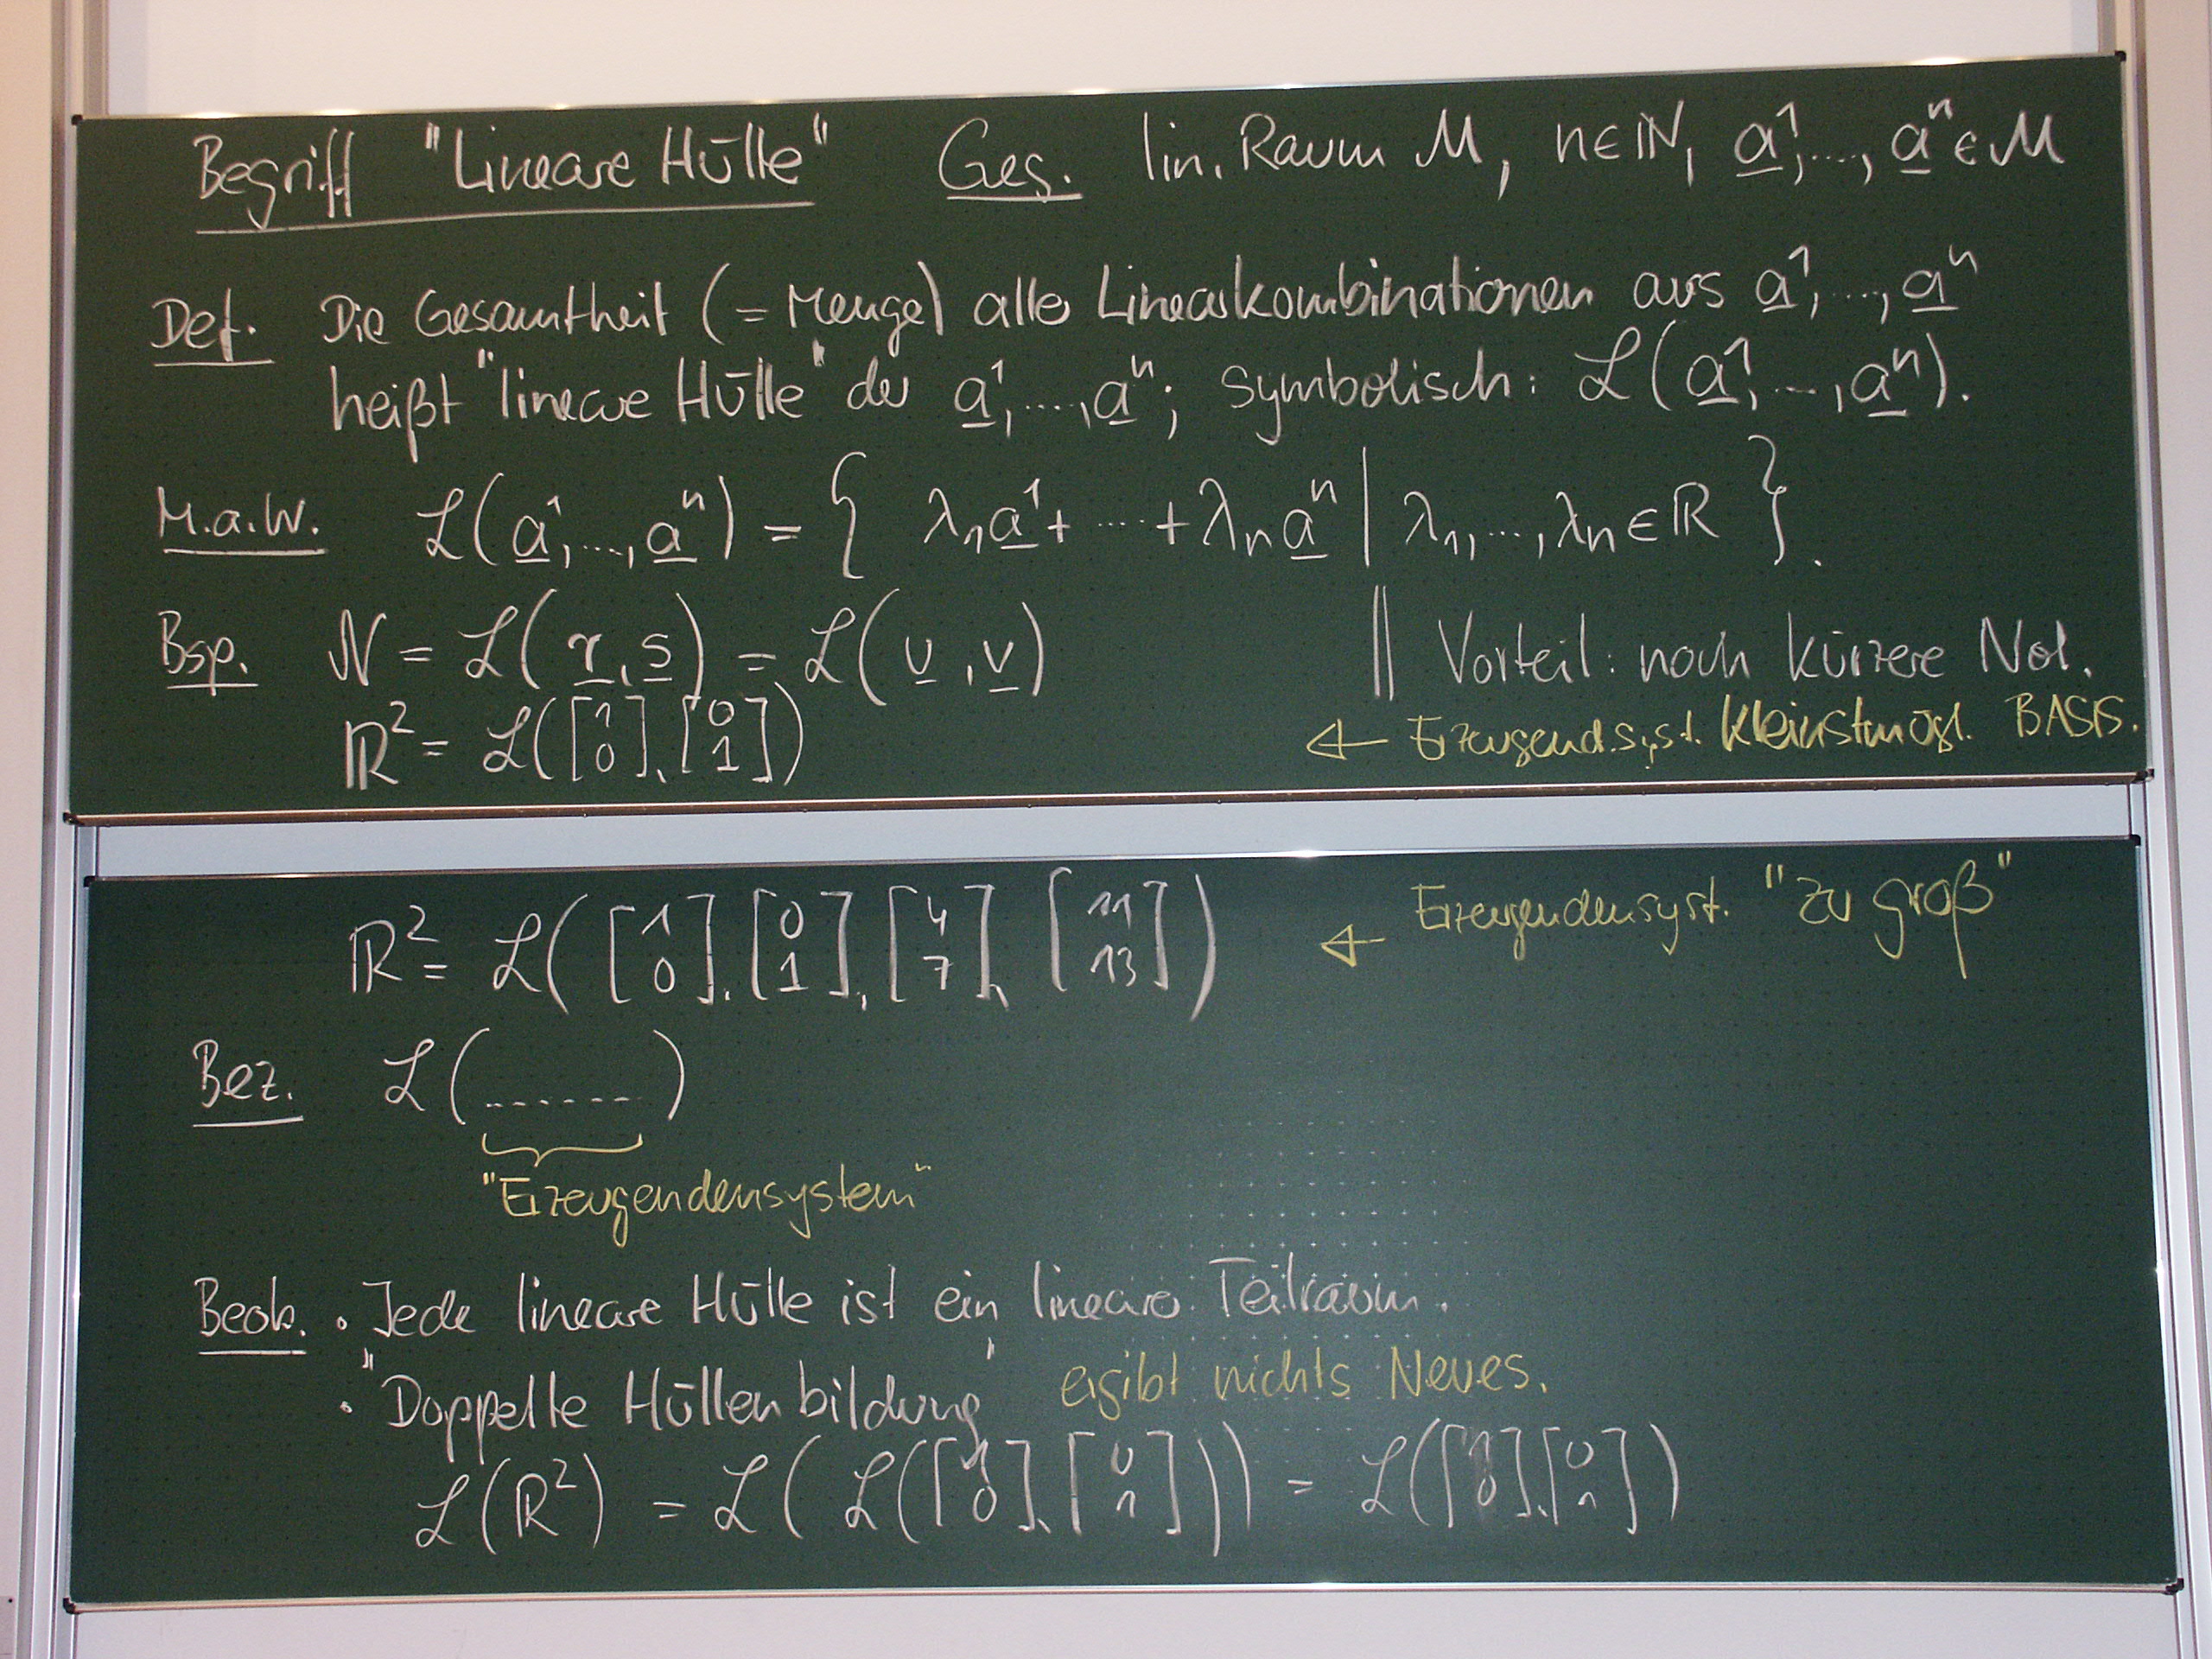 Begriff "Lineare Hülle" Ges. lin. Raum M, n∈ℕ, a¹,...,aⁿ∈M
Def. Die Gesamtheit (=Menge) aller Linearkombinationen aus a¹,...,aⁿ
heißt "lineare Hülle" der a¹,...,aⁿ; symbolisch: ℒ(a¹,...,aⁿ).
M.a.W. ℒ(a¹,...,aⁿ) = { λ₁a¹+ ... +λₙaⁿ | λ₁,...,λₙ∈ℝ }.
Bsp. N = ℒ(r,s) = ℒ(u,v) || Vorteil: noch kürzere Not.
ℝ² = ℒ([1 0],[0 1]) ← Erzeugend.syst. kleinstmögl. BASIS.
ℝ² = ℒ([1 0],[0 1],[4 7],[11 13]) ← Erzeugendensyst. "zu groß"
Bez. ℒ(.......)
"Erzeugendensystem"
Beob. • Jede lineare Hülle ist ein linearer Teilraum.
• "Doppelte Hüllenbildung" ergibt nichts Neues.
ℒ(ℝ²) = ℒ(ℒ([1 0],[0 1])) = ℒ([1 0],[0 1])